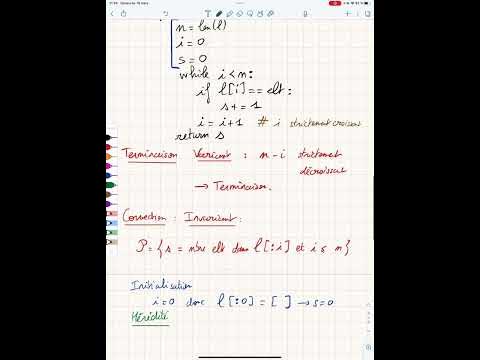 n = len(l)
i = 0
s = 0
while i < n:
if l[i] == elt:
s += 1
i = i+1 # i strictement croissant
return s
Terminaison Variant : n-i strictement
décroissant
→ Terminaison.
Correction : Invariant:
P = { s = nbre elt dans l[:i] et i ≤ n}
Initialisation
i=0 donc l[:0] = [ ] → s=0
Hérédité